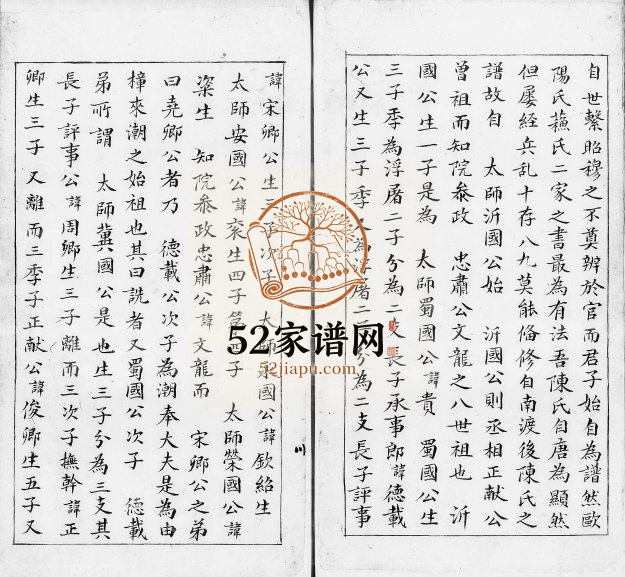 自世繫昭穆之不奠辨於官而君子始自為譜然歐
陽氏蘓氏二家之書最為有法吾陳氏自唐為顯然
但屢經兵乱十存八九莫能俻修自南渡後陳氏之
譜故自 太師沂國公始 沂國公則丞相正献公
曾祖而知院叅政 忠肅公文龍之八世祖也 沂
國公生一子是為 太師蜀國公諱貴 蜀國公生
三子季為浮屠二子分為二支長子承事郎諱德載
公又生三子季 為浮屠二 分為二支長子評事
諱宋卿公生三 次子 太師 國公諱欽紹生
太師安國公諱 生四子 子 太師榮國公諱
楶生 知院叅政忠肅公諱文龍而 宋卿公之弟
曰堯卿公者乃 德載公次子為潮奉大夫是為由
樟來潮之始祖也其曰詵者又蜀國公次子 德載
弟所謂 太師冀國公是也生三子分為三支其
長子評事公諱周卿生三子離而三次子撫幹諱正
卿生三子又離而三季子正献公諱俊卿生五子又
川
52家谱网
52jiapu.com